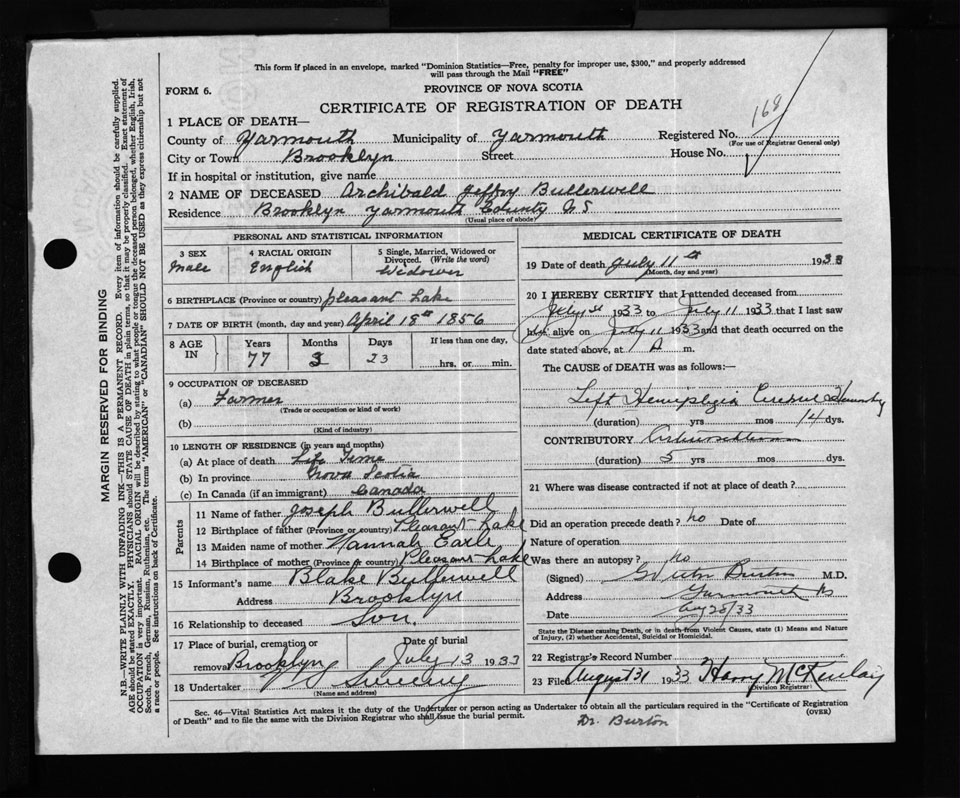 This form if placed in an envelope, marked "Dominion Statistics—Free, penalty for improper use, $300," and properly addressed
will pass through the Mail "FREE"
FORM 6.
PROVINCE OF NOVA SCOTIA
CERTIFICATE OF REGISTRATION OF DEATH
168
1 PLACE OF DEATH—
County of Yarmouth Municipality of Yarmouth Registered No.
(For use of Registrar General only)
City or Town Brooklyn Street House No.
If in hospital or institution, give name
2 NAME OF DECEASED Archibald Jeffry Bullerwell
Residence Brooklyn Yarmouth County N S
(Usual place of abode)
PERSONAL AND STATISTICAL INFORMATION
3 SEX 4 RACIAL ORIGIN 5 Single, Married, Widowed or Divorced. (Write the word)
male English Widower
6 BIRTHPLACE (Province or country) Pleasant Lake
7 DATE OF BIRTH (month, day and year) April 18th 1856
8 AGE IN Years Months Days If less than one day,
77 3 23 hrs. or min.
9 OCCUPATION OF DECEASED
(a) Farmer
(Trade or occupation or kind of work)
(b)
(Kind of industry)
10 LENGTH OF RESIDENCE (in years and months)
(a) At place of death Life Time
(b) In province Nova Scotia
(c) In Canada (if an immigrant) Canada
Parents
11 Name of father Joseph Bullerwell
12 Birthplace of father (Province or country) Pleasant Lake
13 Maiden name of mother Hannah Earle
14 Birthplace of mother (Province or country) Pleasant Lake
15 Informant's name Blake Bullerwell
Address Brooklyn
16 Relationship to deceased Son.
17 Place of burial, cremation or Date of burial
removal Brooklyn July 13 1933
18 Undertaker Sweeny
(Name and address)
MEDICAL CERTIFICATE OF DEATH
19 Date of death July 11th 1933
(Month, day and year)
20 I HEREBY CERTIFY that I attended deceased from
1933 to July 11 1933 that I last saw
him alive on July 11 1933 and that death occurred on the
date stated above, at A m.
The CAUSE of DEATH was as follows:—
Left Hemiplegia
(duration) yrs mos 14 dys.
CONTRIBUTORY
(duration) 5 yrs mos dys.
21 Where was disease contracted if not at place of death?
Did an operation precede death? no Date of
Nature of operation
Was there an autopsy? no
(Signed) Burton M.D.
Address Yarmouth NS
Date Aug 28/33
State the Disease causing Death, or in death from Violent Causes, state (1) Means and Nature
of Injury, (2) whether Accidental, Suicidal or Homicidal.
22 Registrar's Record Number
23 Filed August 31 1933 Harry McKinlay
Division Registrar
Sec. 46—Vital Statistics Act makes it the duty of the Undertaker or person acting as Undertaker to obtain all the particulars required in the "Certificate of Registration
of Death" and to file the same with the Division Registrar who shall issue the burial permit.
(OVER)
Dr. Burton
MARGIN RESERVED FOR BINDING
N.B.—WRITE PLAINLY WITH UNFADING INK—THIS IS A PERMANENT RECORD. Every item of information should be carefully supplied.
AGE should be stated EXACTLY. PHYSICIANS should STATE CAUSE OF DEATH in plain terms, so that it may be properly classified. Exact statement of
OCCUPATION is very important. RACIAL ORIGIN will be described by stating to what people or tongue the deceased person belonged, whether English, Irish,
Scotch, French, German, Russian, Ruthenian, etc. The terms "AMERICAN" or "CANADIAN" SHOULD NOT BE USED as they express citizenship but not
a race or people. See instructions on back of Certificate.